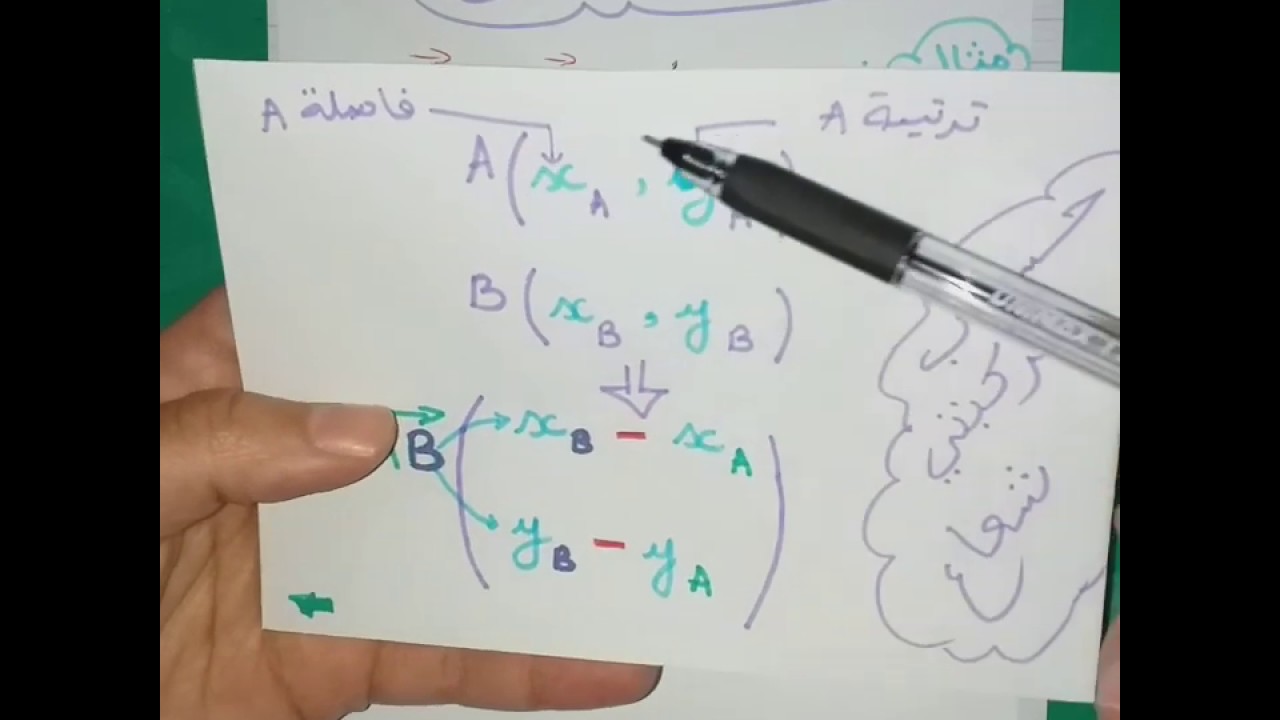 مثال
فاصلة A
ترتيبة A
A ( x_A , y_A )
B ( x_B , y_B )
⇓
B→ ( x_B - x_A
y_B - y_A )